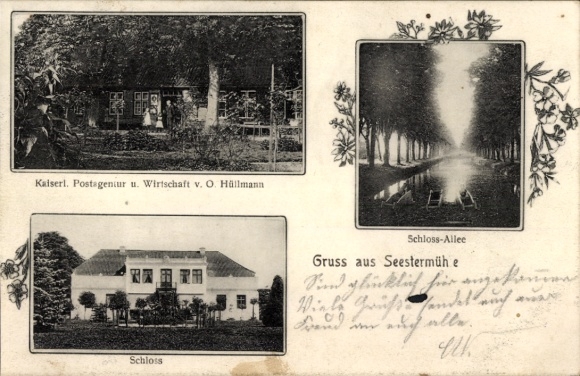 Kaiserl. Postagentur u. Wirtschaft v. O. Hüllmann
Schloss-Allee
Gruss aus Seestermühe
Schloss
Sind glücklich hier angekommen
Viele Grüße sendet euch euer
Freund an euch alle.